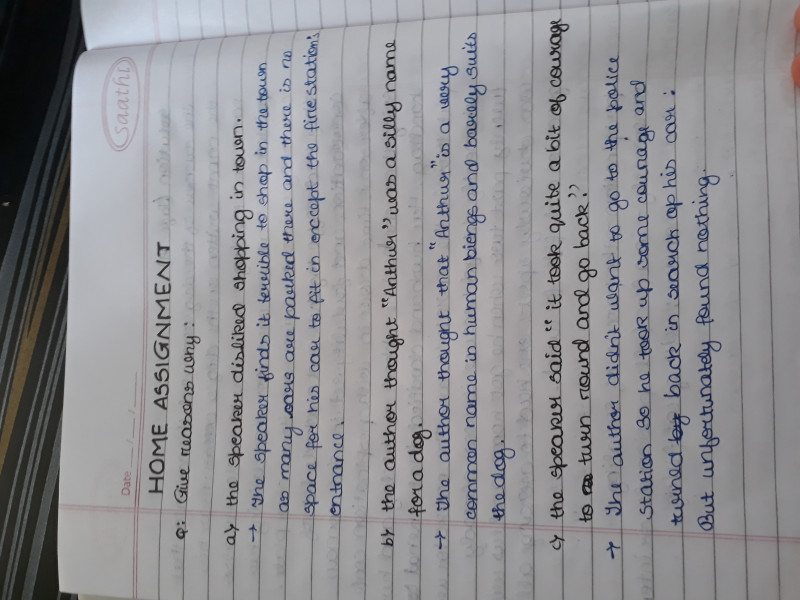 saathi
Date __/__/__
HOME ASSIGNMENT
Q: Give reasons why:
a) the speaker disliked shopping in town.
→ The speaker finds it terrible to shop in the town
as many cars are parked there and there is no
space for his car to fit in except the fire station:
entrance.
b) the author thought "Arthur" was a silly name
for a dog.
→ The author thought that "Arthur" is a very
common name in human biengs and barely suits
the dog.
c) the speaker said "it took quite a bit of courage
to turn round and go back."
→ The author didn't want to go to the police
station so he took up some courage and
turned back in search of his car:
But unfortunately found nothing.